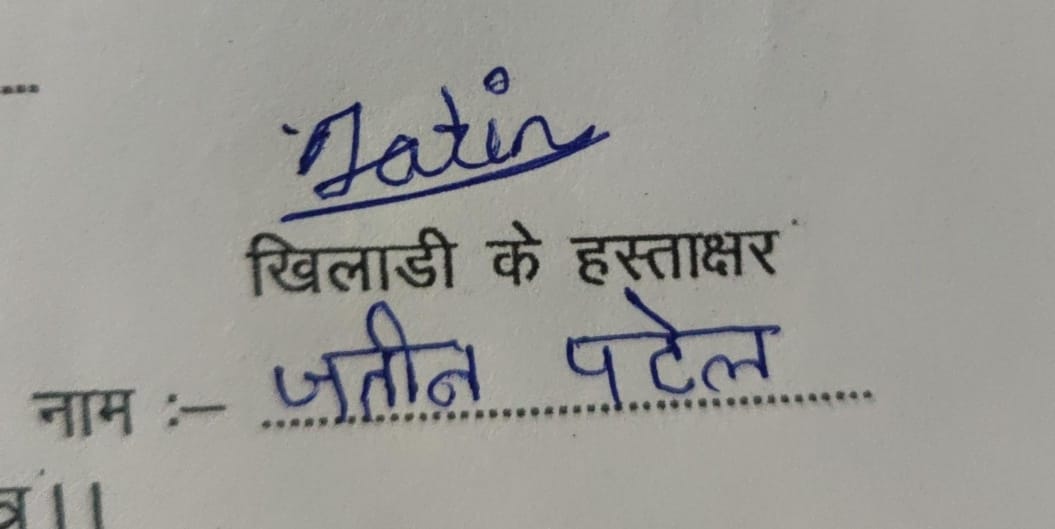 Jatin
खिलाडी के हस्ताक्षर
नाम :– जतीन पटेल